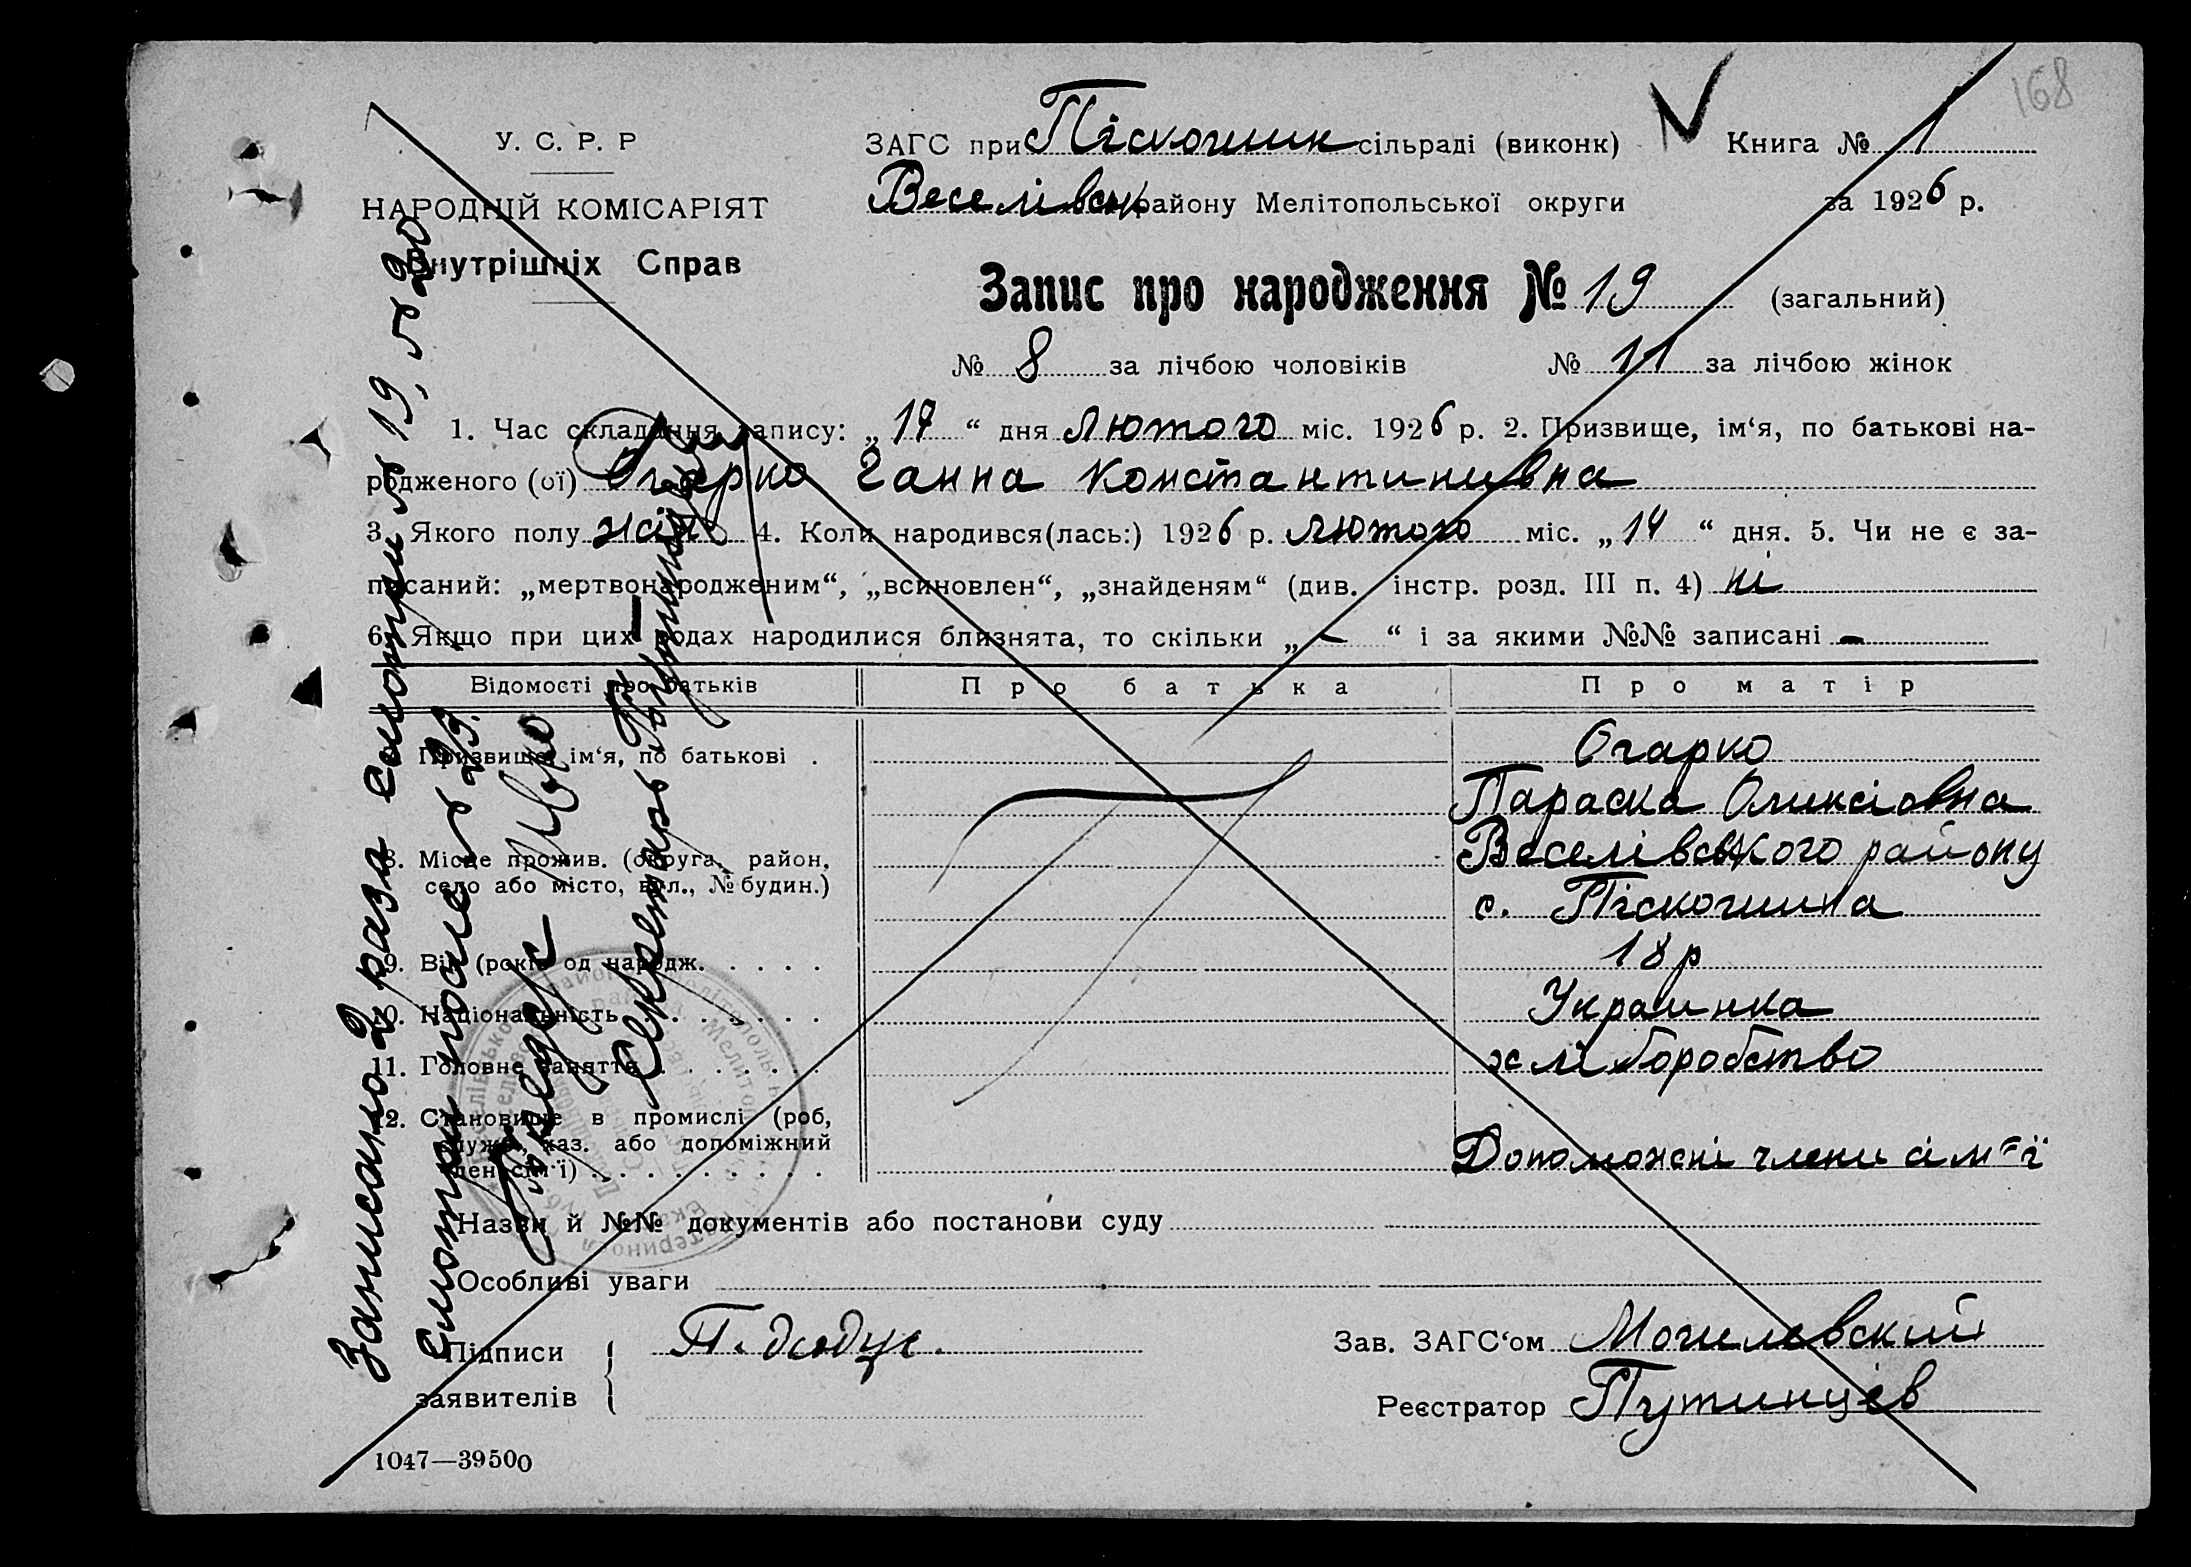 168
У. С. Р. Р
НАРОДНІЙ КОМІСАРІЯТ
Внутрішніх Справ
ЗАГС при Піскошин сільраді (виконк)
Книга № 1
Веселівськ району Мелітопольської округи
за 1926 р.
Запис про народження № 19 (загальний)
№ 8 за лічбою чоловіків № 11 за лічбою жінок
1. Час складання запису: „ 17 “ дня лютого міс. 1926 р. 2. Призвище, ім‘я, по батькові на-
родженого (ої) Огарко Ганна Константинивна
3. Якого полу жін 4. Коли народився(лась:) 1926 р. лютого міс. „ 14 “ дня. 5. Чи не є за-
писаний: „мертвонародженим“, „всиновлен“, „знайденям“ (див. інстр. розд. III п. 4) ні
6. Якщо при цих родах народилися близнята, то скільки „ - “ і за якими №№ записані -
Відомості про батьків
Про батька
Про матір
Призвище, ім‘я, по батькові .
Огарко
Параска Оликсіовна
8. Місце прожив. (округа, район,
село або місто, вул., № будин.)
Веселівського району
с. Піскошина
9. Вік (років од народж. . . . . .
18 р
10. Національність . . . . . . .
Украинка
11. Головне заняття . . . . . .
хліборобство
12. Становище в промислі (роб,
служб, хаз. або допоміжний
член сім‘ї) . . . . . . . . .
Допоможні члени сім-ї
Назви й №№ документів або постанови суду
Особливі уваги
Підписи
заявителів
Зав. ЗАГС‘ом Могилевский
Реєстратор Путинцев
1047—39500
Записано 2 раза смотри № 19, № 20
Смотри после № 23.
Секретарь